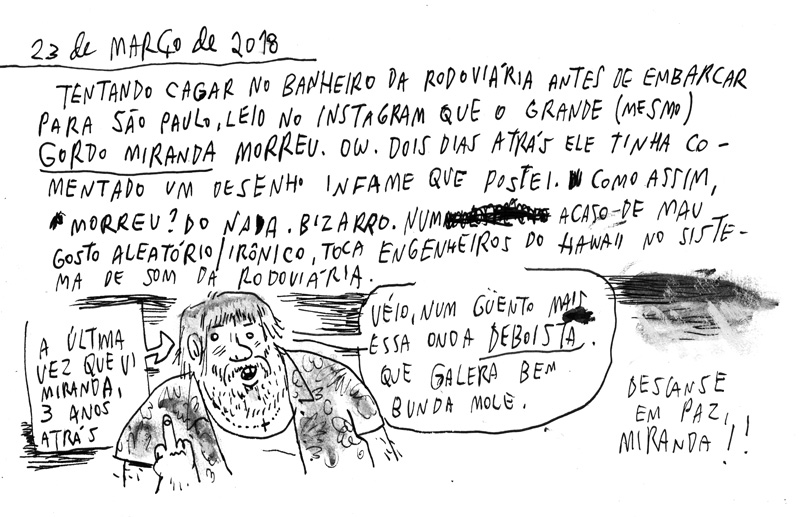 23 de MARÇO de 2018
TENTANDO CAGAR NO BANHEIRO DA RODOVIÁRIA ANTES DE EMBARCAR
PARA SÃO PAULO, LEIO NO INSTAGRAM QUE O GRANDE (MESMO)
GORDO MIRANDA MORREU. OW. DOIS DIAS ATRÁS ELE TINHA CO-
MENTADO UM DESENHO INFAME QUE POSTEI. COMO ASSIM,
MORREU? DO NADA. BIZARRO. NUM ACASO DE MAU
GOSTO ALEATÓRIO/IRÔNICO, TOCA ENGENHEIROS DO HAWAII NO SISTE-
MA DE SOM DA RODOVIÁRIA.
A ÚLTIMA
VEZ QUE VI
MIRANDA,
3 ANOS
ATRÁS
VÉIO, NUM GÜENTO MAIS
ESSA ONDA DEBOISTA.
QUE GALERA BEM
BUNDA MOLE.
DESCANSE
EM PAZ,
MIRANDA!!